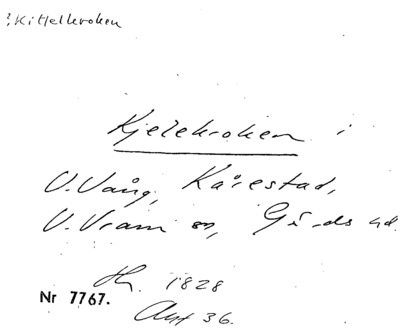 ? Kittelkroken
Kjelekroken i
V. Vång, Kårestad,
V. Vram sn, Gärds hd.
Hr. 1828
Nr 7767.
Akt 36.